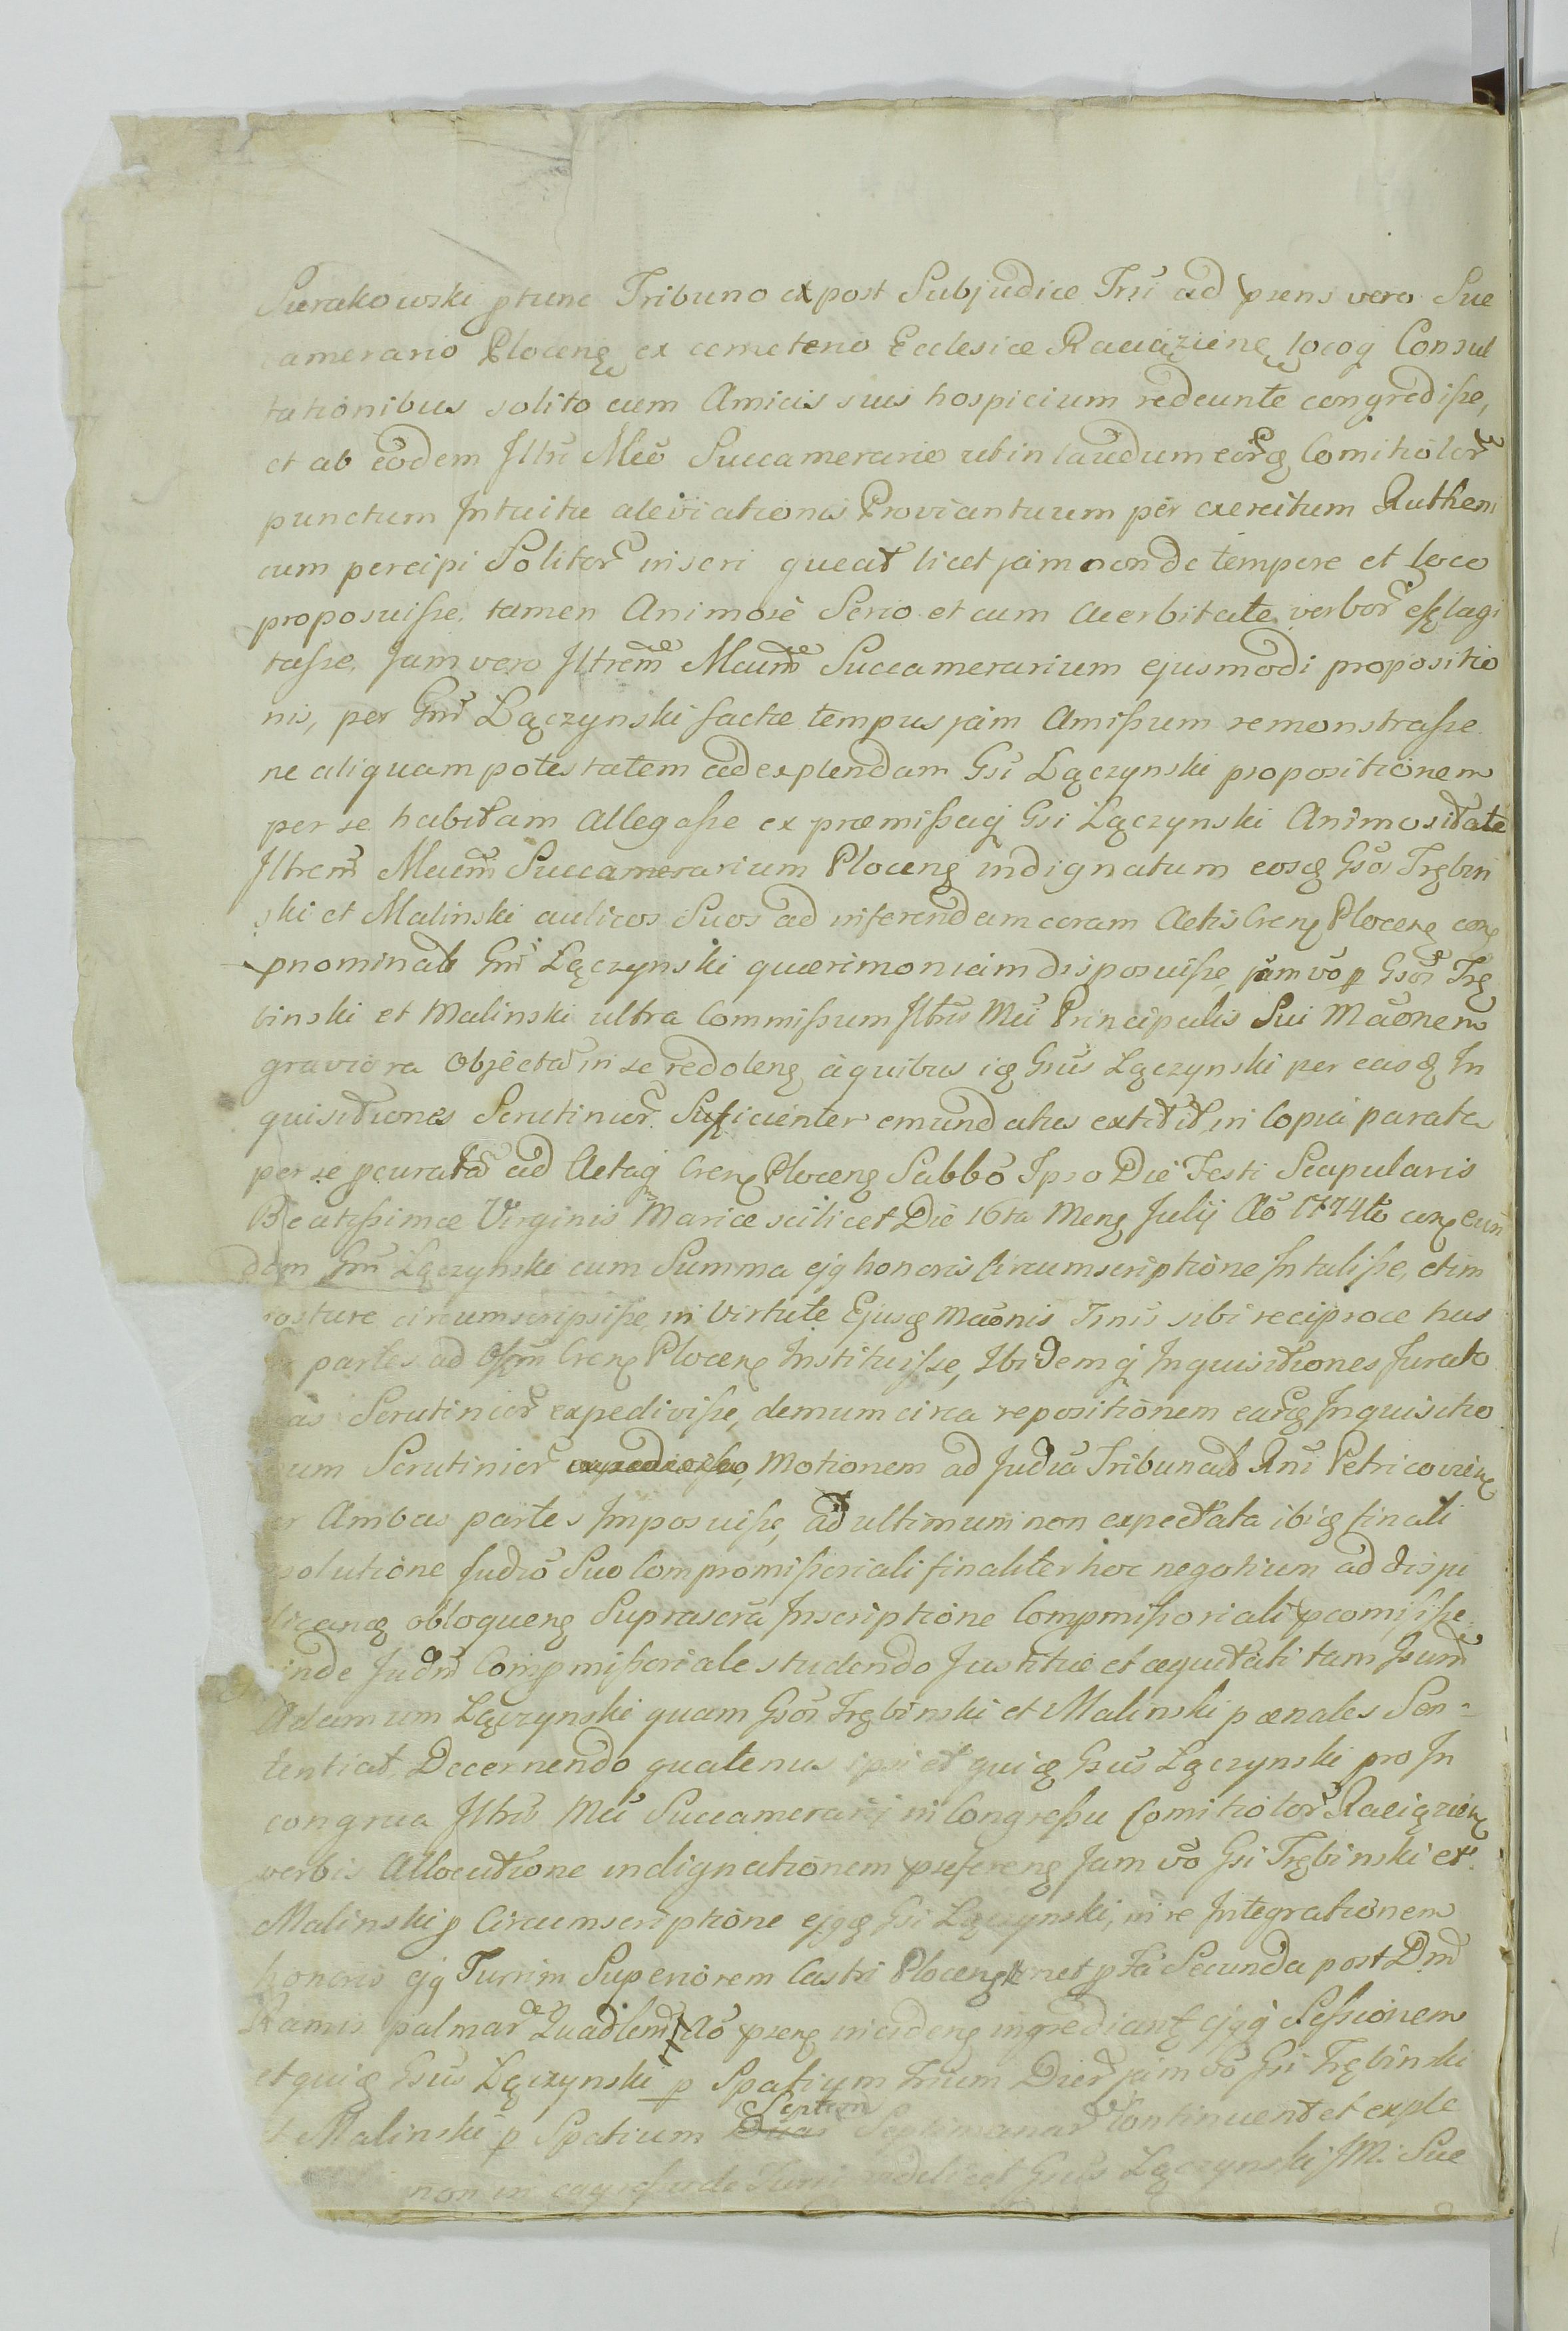 Surakowski ptunc Tribuno ex post Subjudice Tri ad psens vero Suc
camerario Plocen ex cemeterio Ecclesiæ Raciązien locoq Consul
tationibus solito cum Amicis suis hospicium redeunte congredisse,
et ab eodem Illri Mco Succamerario ut in laudum eorq Comitiolor
punctum Intuitu aleviationis Proviantuum per exercitum Ruthen
cum percipi Solitor inseri queat licet jam non de tempore et loco
proposuisse tamen Animose Serio et cum Acerbitate verbor efflagi
tasse, Jam vero Illrem Mcum Succamerarium ejusmodi propositio
nis, per Gnr Łączynski factæ tempus jam Amissum remonstrasse
ne aliquam potestatem ad explendam Gsi Łączynski propositionem
per se habitam Allegasse ex præmissaq Gsi Łączynski Animositate
Illrem Mcum Succamerarium Plocen indignatum eosq Gsos Trębin
ski et Malinski aulicos Suos ad inferendam coram Actis Cren Plocen con
pnominat Gnr Łączynski quærimoniam disposuisse, jam vo p Gsos Trę
binski et Malinski ultra Commissum Illris Mci Principalis Sui Maonem
graviora Objecta in se redolen a quibus iq Gsus Łączynski per easq In
quisitiones Scrutinior Suficienter emundatus extitit, in Copia parata
per se pcurata ad Actaq Cren Plocen Sabbo Ipso Die Festi Scapularis
Beatissimæ Virginis Mariæ scilicet Die 16ta Men Julij Ao 1774to con eun
dem Gnr Łączynski cum Summa ejq honoris Circumscriptione Intulisse, etim
posture circumscripsisse, in Virtute Ejusq Maonis Tnis sibi reciproce has
partes ad Offm Cren Plocen Instituisse, Ibidemq Inquisitiones Jurato
as Scrutinior expedivisse, demum circa repositionem earq Inquisitio
um Scrutinior Motionem ad Judia Tribunal Rni Petricovien
er Ambas partes Imposuisse, ad ultimum non expectata ibiq finali
solutione Judio Suo Compromissoriali finaliter hoc negotium ad dispu
licanq obloquen Suprascra Inscriptione Compmissoriali pcomisisse
inde Judm Compmissoriale studendo Justitiæ et æquitati tam Gsum
Adamum Łączynski quam Gsos Trębinski et Malinski pænales Sen-
tentiat, Decernendo quatenus ipsi et quiq Gsus Łączynski pro In
congrua Illris Mci Succamerarij in Congressu Comitiolor Raciązien
verbis Allocutione indignationem pseferen Jam vo Gsi Trębinski et
Malinski p Circumscriptione ejqq Gsi Łączynski, in re Integrationem
honoris ejq Turrim Superiorem Castri Plocen net p fa Secunda post Dm
Ramis palmar Quadlem Ao psen inciden ingrediant ejqq Sessionem
et quiq Gsus Łączynski p Spatium trium Dier jam vo Gsi Trębinski
et Malinski p Spatium Septem Septimanar Continuent et exple
non in Turri videlicet Gsus Łączynski IM. Suc